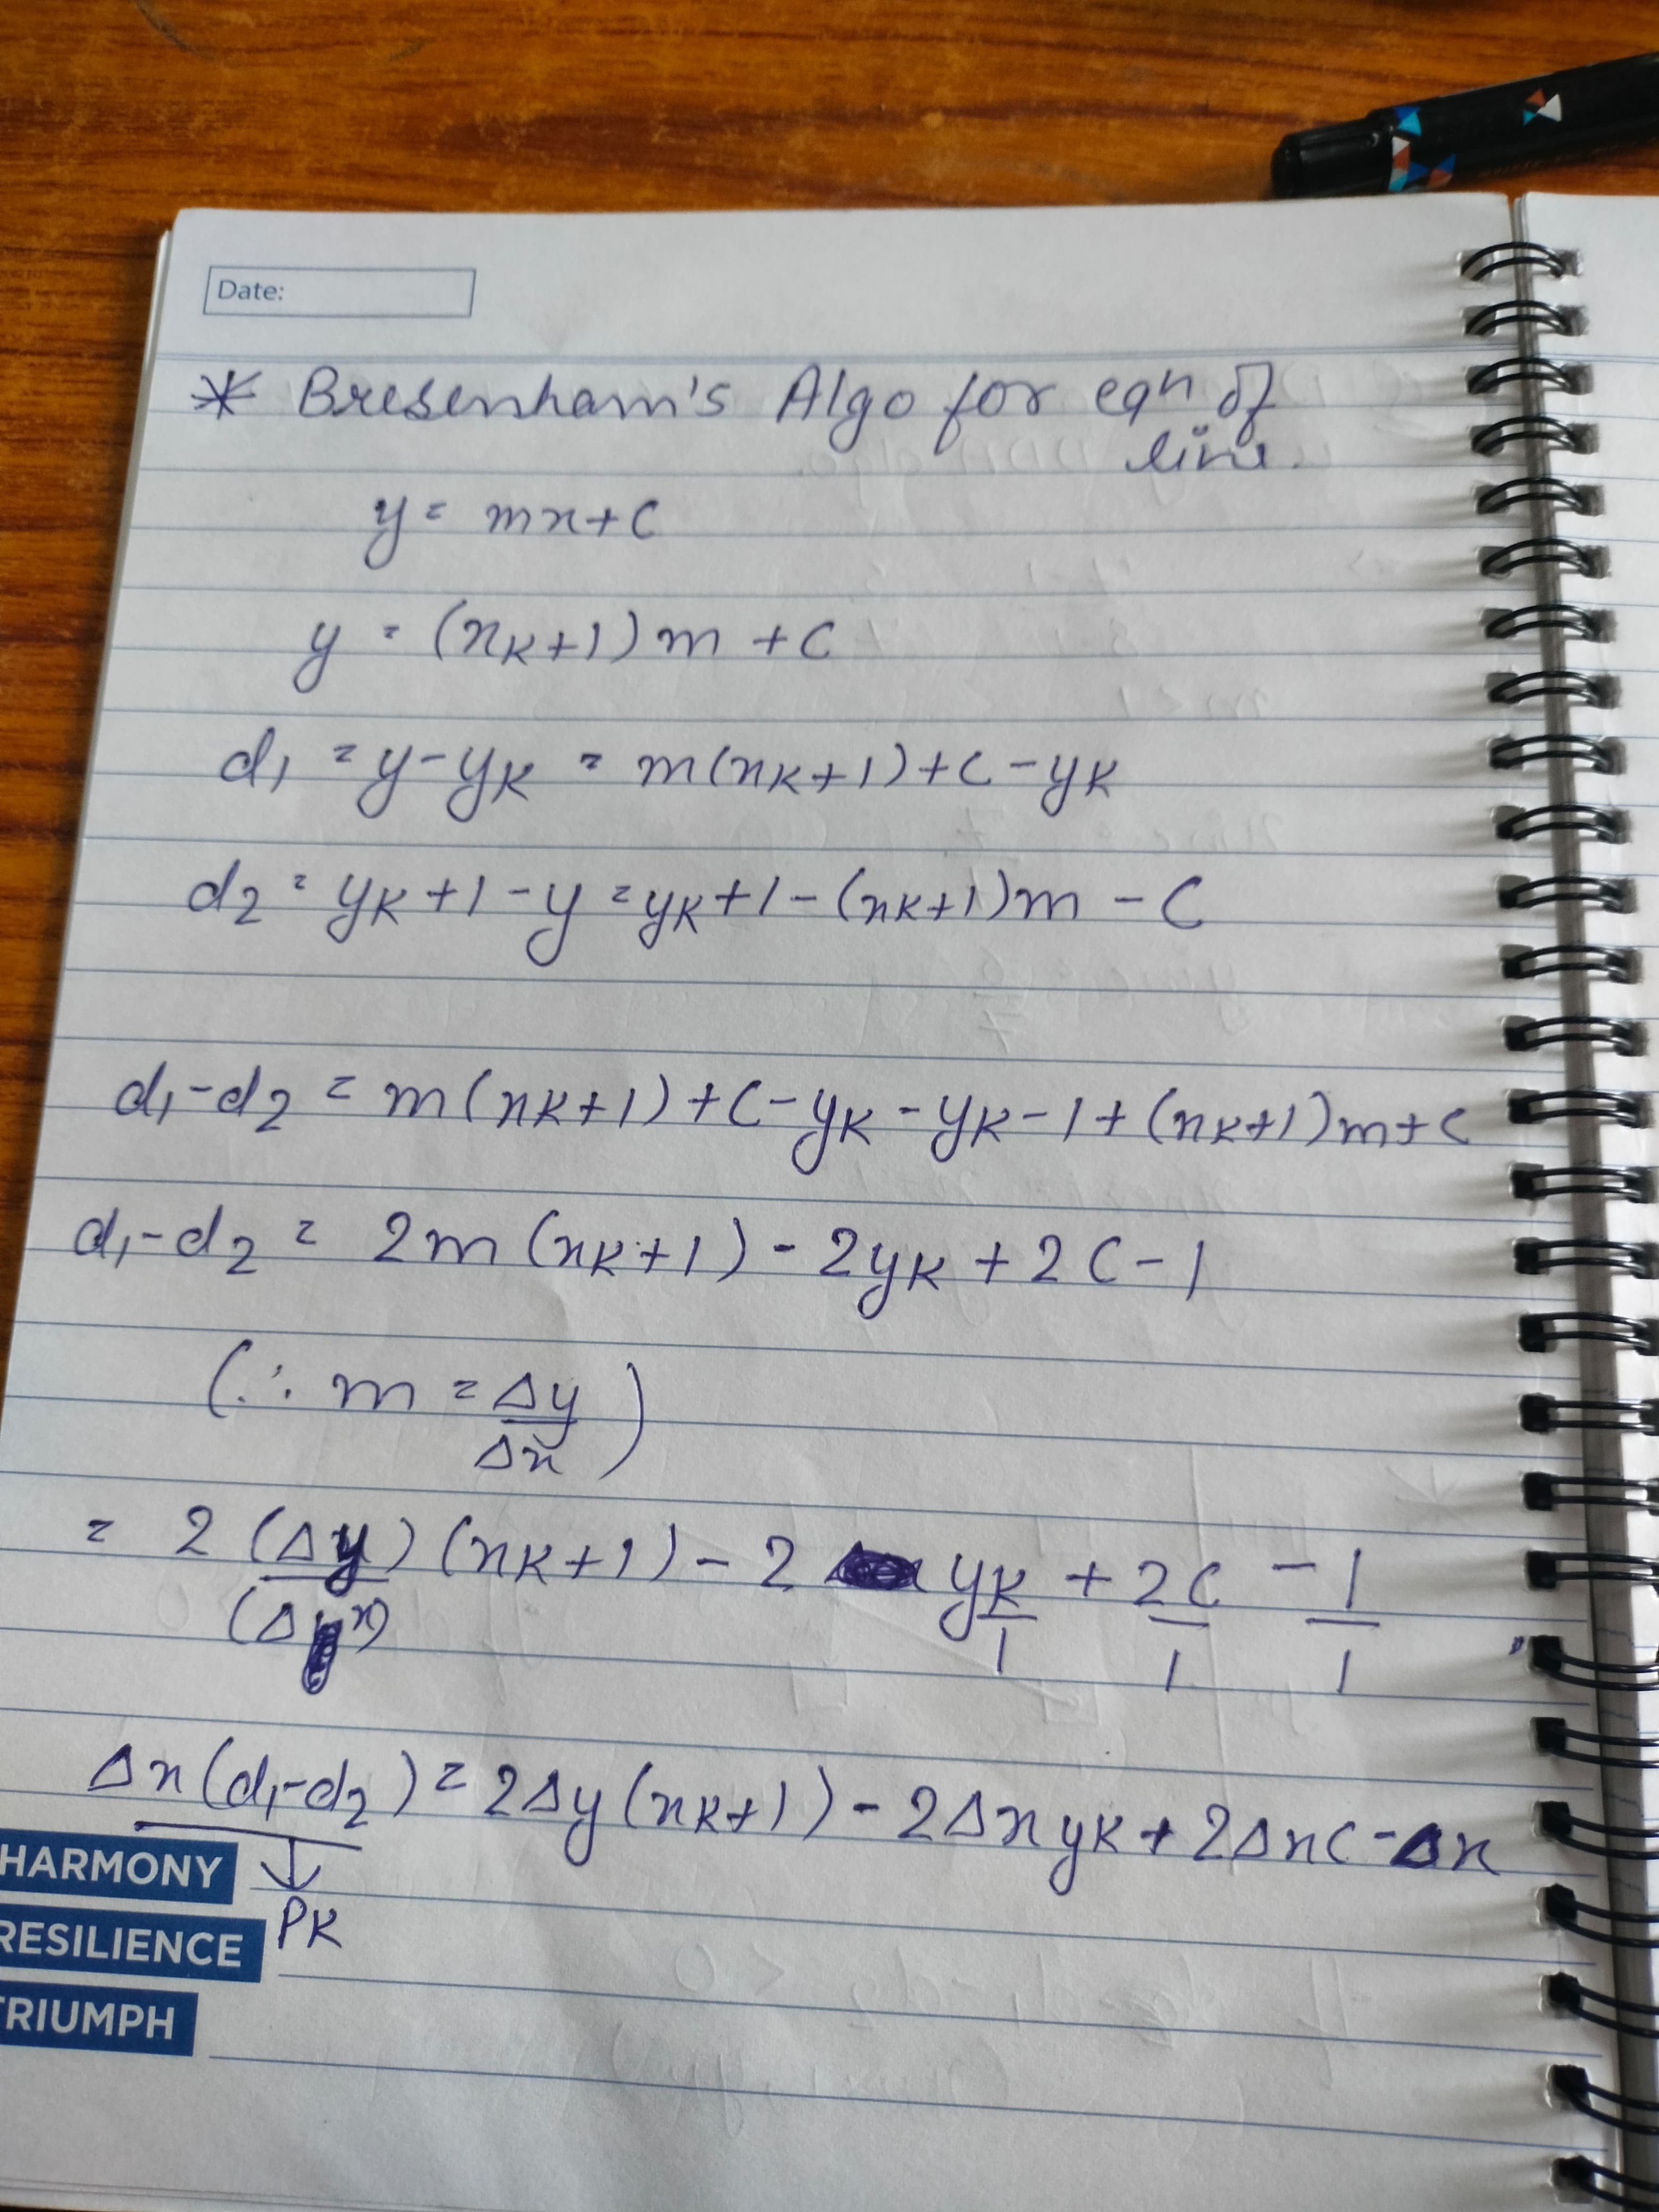 Date:
* Bresenham's Algo for eqn of
line.
y = mx+c
y = (xk+1)m +c
d1 = y-yk = m(xk+1)+c-yk
d2 = yk+1-y = yk+1-(xk+1)m -c
d1-d2 = m(xk+1)+c-yk-yk-1+(xk+1)m+c
d1-d2 = 2m(xk+1)-2yk+2c-1
(∴ m = Δy/Δx)
= 2 (Δy)/(Δx) (xk+1) - 2 yk/1 + 2c/1 - 1/1
Δx(d1-d2) = 2Δy(xk+1)-2Δxyk+2Δxc-Δx
Pk
HARMONY
RESILIENCE
TRIUMPH